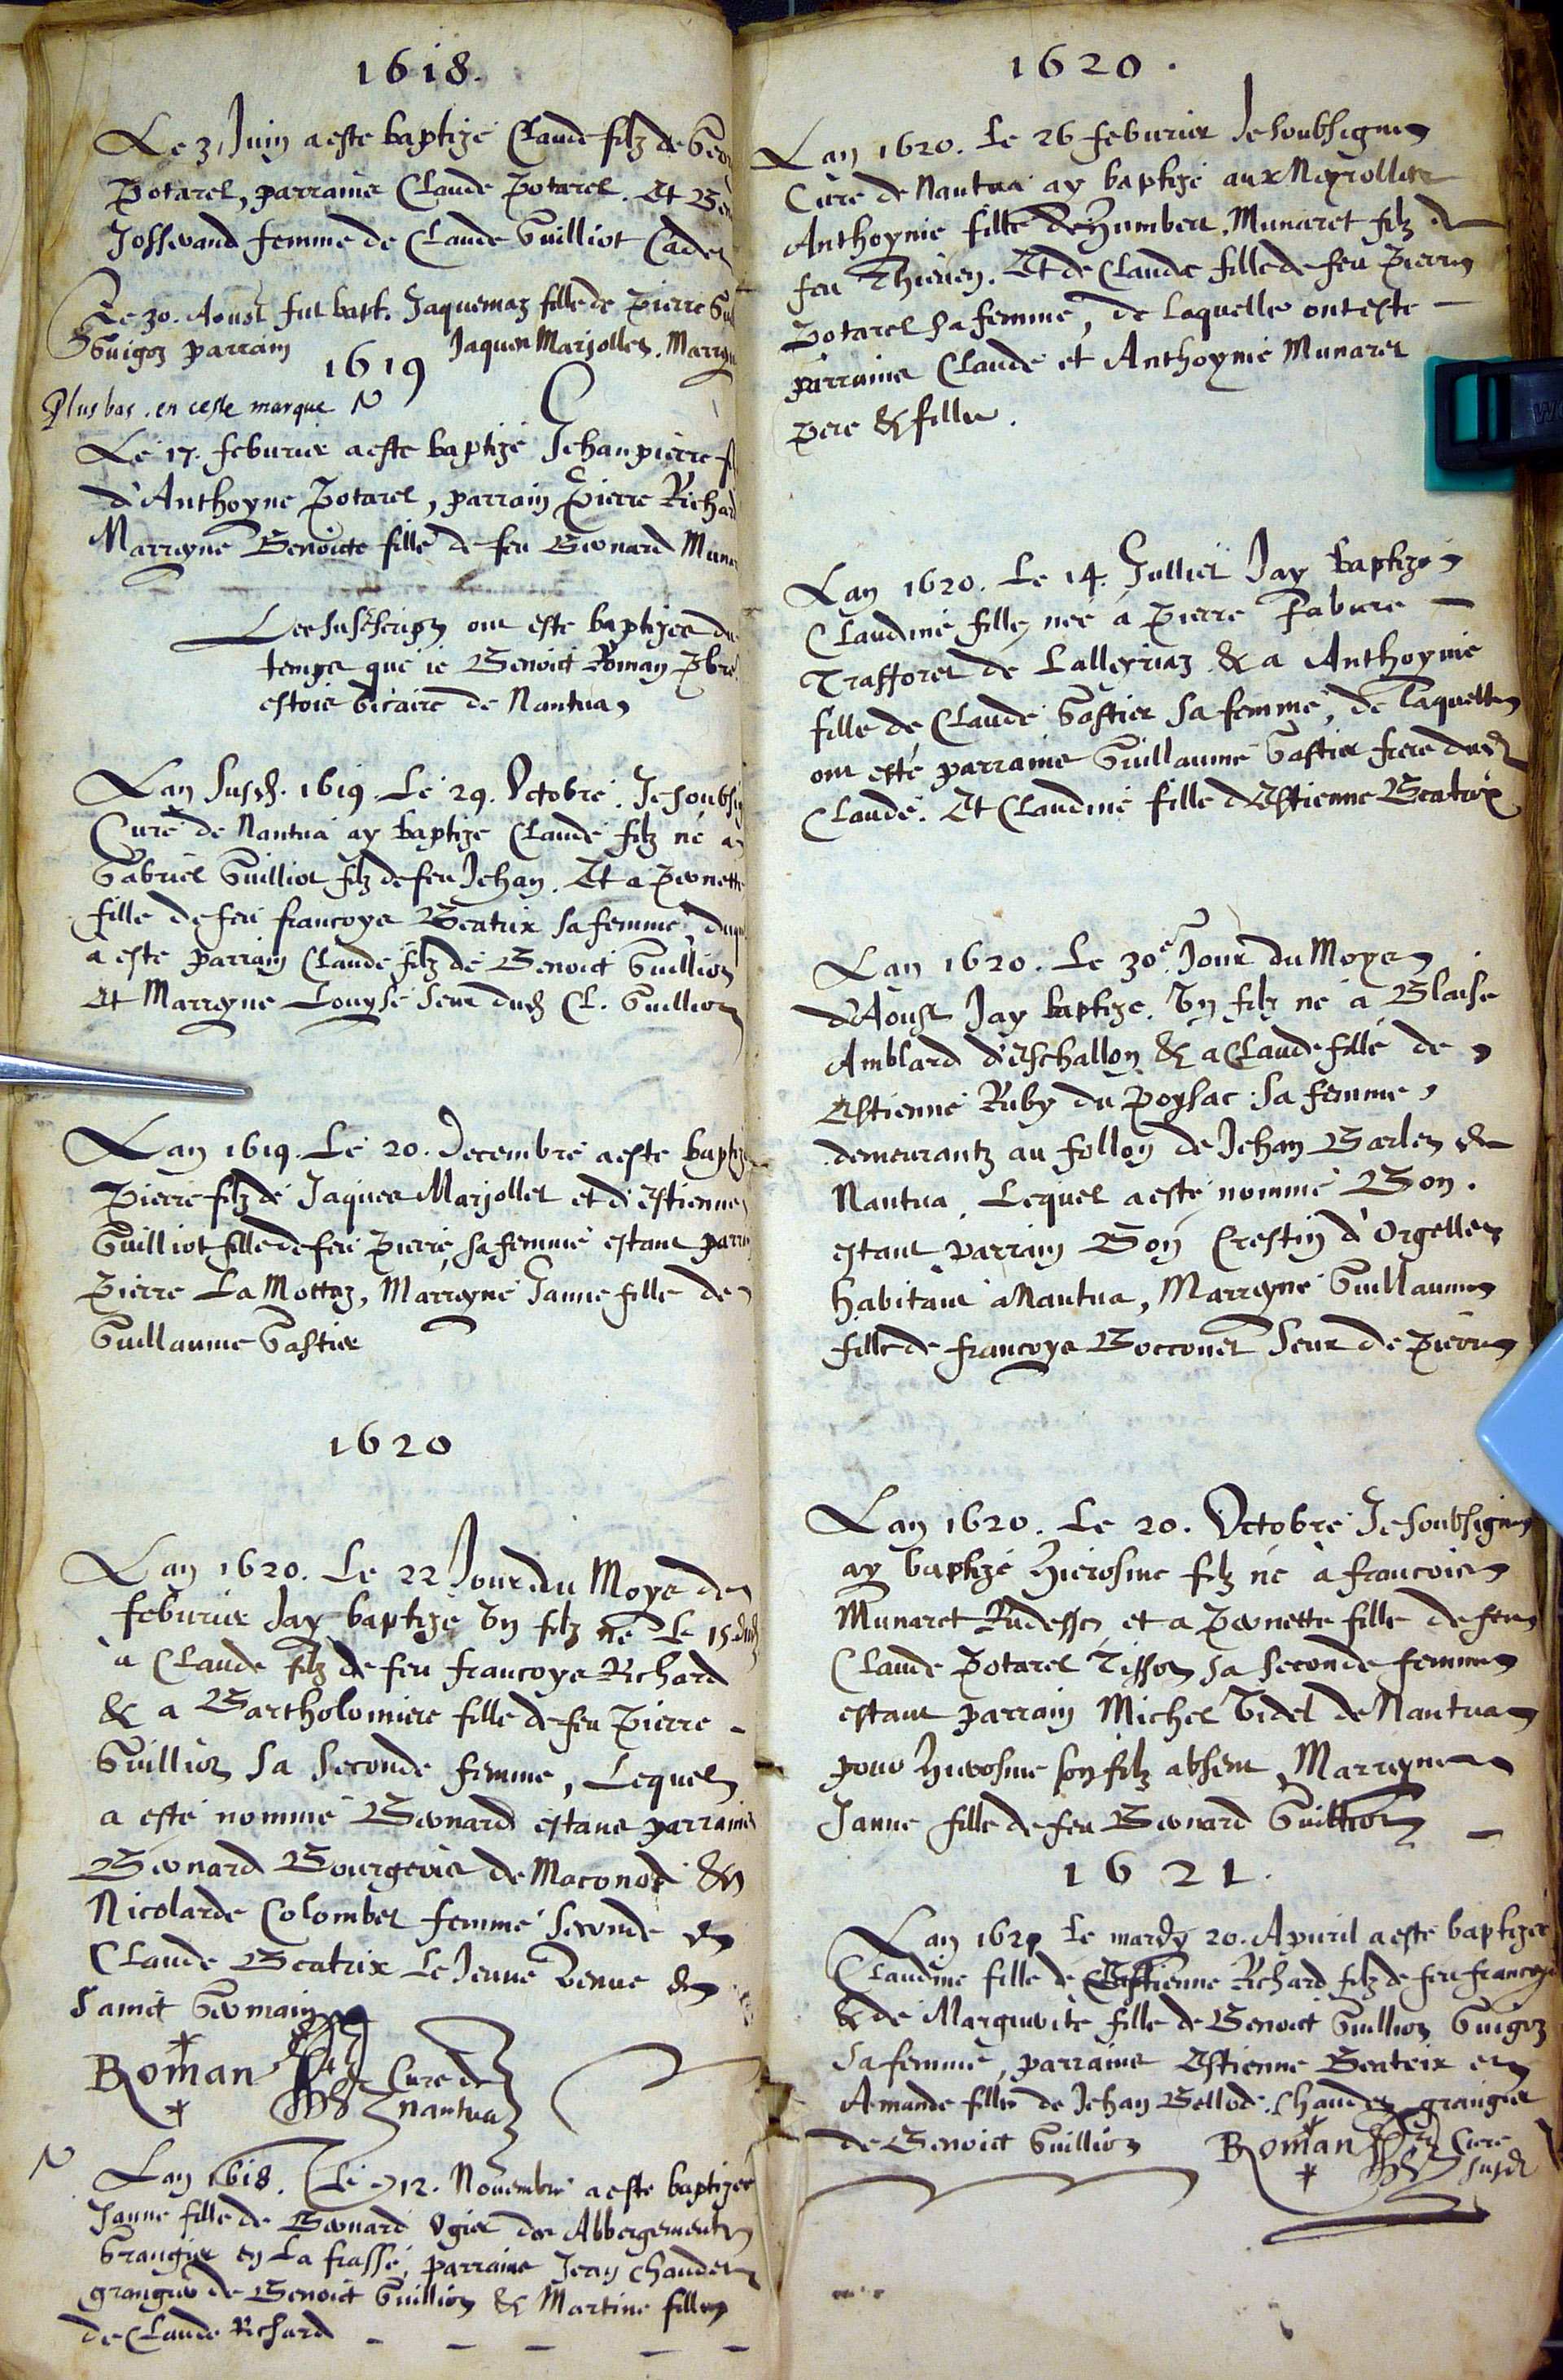 1618.
Le 3 Juin a este baptizé Claude filz de
Potarel, parrains Claude Potarel. Et
Josserand femme de Claude Guilliot Cadet
Le 30. Aoust fut bapt. Jaquemaz fille de Pierre
Guigoz parrain Jaques Marjolles. Marryn
1619
Plus bas. en ceste marque N
Le 17. feburier a este baptizé Jehanpierre
d'Anthoyne Potarel, parrain Pierre Richard
Marryne Benoicte fille de feu Bernard
Les susescriptz ont este baptizes du
temps que ie Benoict Roman pbre
estois vicaire de Nantua
Lan susd. 1619. Le 29. Octobre. Je soubsig
Curé de Nantua ay baptizé Claude filz né a
Gabriel Guilliot filz de feu Jehan. Et a Pernette
fille de feu francoys Beatrix sa femme,
a este parrain Claude filz de Benoict Guilliot
Et Marryne Louyse seur dud. Cl. Guilliot
Lan 1619. Le 20. Decembre a este baptizé
Pierre filz de Jaques Marjollet et d'Estienne
Guilliot fille de feu Pierre, sa femme estant parrain
Pierre La Mottaz, Marryne Janne fille de
Guillaume Gastier
1620
Lan 1620. Le 22 Jour du Moys de
feburier Jay baptizé Un filz né Le 15. dud
a Claude filz de feu francoys Richard
& a Bartholomiere fille de feu Pierre
Guilliot sa seconde femme, Lequel
a esté nommé Bernard estans parrains
Bernard Bourgeois de Maconod &
Nicolarde Colombet femme seconde de
Claude Beatrix Le Jeune venue de
Sainct Germain
Roman Cure de
Nantua
N
Lan 1618. Le 12. Novembre a este baptizee
Janne fille de Bernard Ogier des Abbergementz
Grangier en La frasse, parrains Jean Chaudet
grangier de Benoict Guilliot & Martine fille
de Claude Richard
1620.
Lan 1620. Le 26 feburier Je soubsigne
Cure de Nantua ay baptizé aux Neyrolles
Anthoynie fille de Humbert Munaret filz de
feu Thieven. Et de Claude fille de feu Pierre
Potarel sa femme, de laquelle ont este
parrains Claude et Anthoynie Munaret
pere & fille.
Lan 1620. Le 14. Jullier Jay baptizé
Claudine fille née à Pierre Fabure
Trafforet de Lalleyriaz & a Anthoynie
fille de Claude Gastier sa femme, de laquelle
ont esté parrains Guillaume Gastier frere dud
Claude. Et Claudine fille d'Estienne Beatrix
Lan 1620. Le 30e Jour du Moys
d'Aoust Jay baptizé. Un filz né a Blaise
Amblard d'Eschallon & a Claude fille de
Estienne Ruby du Poysac sa femme
demeurantz au follon de Jehan Barlet de
Nantua, Lequel a esté nommé Bon.
estant parrain Bon Crestin d'Orgellet
habitant a Nantua, Marryne Guillaume
fille de francoys Bocconet seur de Pierre
Lan 1620. Le 20. Octobre Je soubsigne
ay baptizé Hierosme filz né à francois
Munaret Rudesse et a Pernette fille de feu
Claude Potarel Tissot sa seconde femme
estant parrain Michel Videt de Nantua
pour Hierosme son filz absent, Marryne
Janne fille de feu Bernard Guilliot
1621.
Lan 1621 Le mardy 20. Apuril a este baptizée
Claudine fille de Estienne Richard filz de feu francoys
& de Marguerite fille de Benoict Guilliot Guigoz
sa femme, parrains Estienne Beatrix et
Amande fille de Jehan Bellod. Chaudet grangier
de Benoict Guilliot
Roman Cure
susd